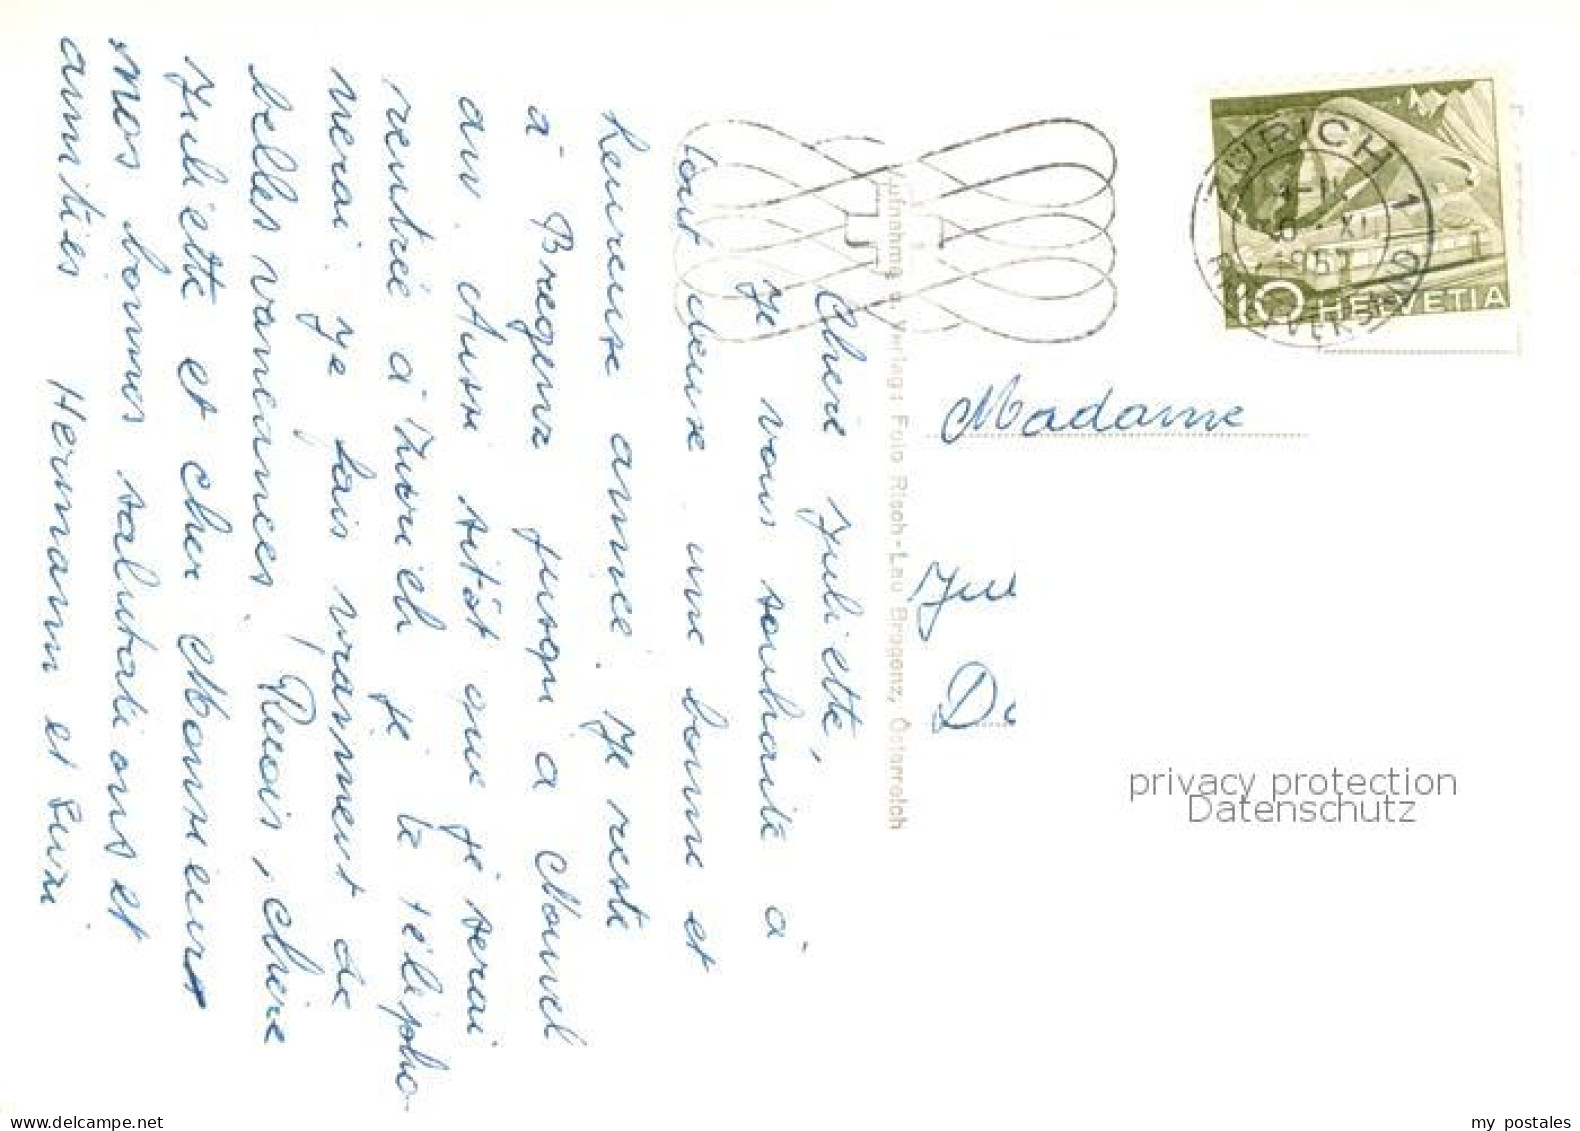 Chère Juliette,
Je vous souhaite à
tout deux une bonne et
heureuse année. Je reste
à Bregenz jusqu a Nouvel
an. Aussi sitôt que je serai
rentrée à Zurich je te télépho-
nerai. Je fais vraiment de
belles vancances. Reçois, chère
Juliette et cher Monsieur
nos bonnes salutations et
amitiés Hermann et Susi
Aufnahme u. Verlag: Foto Risch-Lau Bregenz, Österreich
ZÜRICH 1
XII
1957
BRIEFVERSAND
10 HELVETIA
Madame
Jul
Do
privacy protection
Datenschutz
my postales